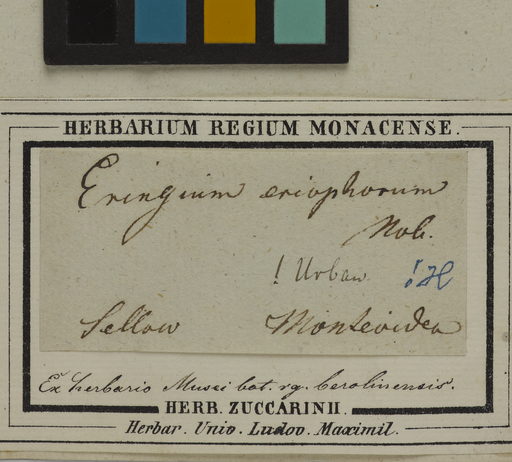 HERBARIUM REGIUM MONACENSE.
Eringium eriophorum
Nob.
! Urban !H
Sellow Montevideo
Ex herbario Musei bot. rg. berolinensis.
HERB. ZUCCARINII.
Herbar. Univ. Ludov. Maximil.